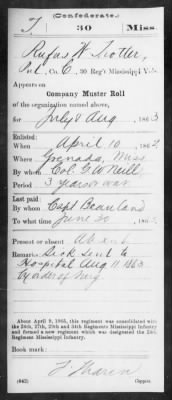 (Confederate.)
T 30 Miss.
Rufus W. Trotter,
Pvt., Co. E., 30 Reg't Mississippi Vols.
Appears on
Company Muster Roll
of the organization named above,
for July & Aug, 1863
Enlisted:
When April 10, 1862
Where Grenada, Miss.
By whom Col. G. W. Neill
Period 3 years or war
Last paid:
By whom Capt Beauland
To what time June 30, 186
Present or absent Absent
Remarks: Sick sent to
Hospital Aug 11 1863
by order of Surg
About April 9, 1865, this regiment was consolidated with
the 24th, 27th, 29th and 34th Regiments Mississippi Infantry
and formed a new regiment which was designated the 24th
Regiment Mississippi Infantry.
Book mark:
(642) Copyist.